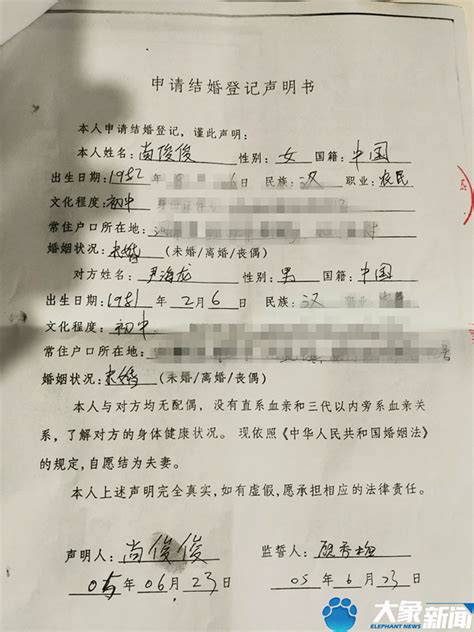 申请结婚登记声明书
本人申请结婚登记，谨此声明：
本人姓名：尚俊俊 性别：女 国籍：中国
出生日期：1982年 6日 民族：汉 职业：农民
文化程度：初中
常住户口所在地：
婚姻状况：未婚（未婚/离婚/丧偶）
对方姓名：尹海龙 性别：男 国籍：中国
出生日期：1981年2月6日 民族：汉
文化程度：初中
常住户口所在地： 号
婚姻状况：未婚（未婚/离婚/丧偶）
本人与对方均无配偶，没有直系血亲和三代以内旁系血亲关
系，了解对方的身体健康状况。现依照《中华人民共和国婚姻法》
的规定，自愿结为夫妻。
本人上述声明完全真实，如有虚假，愿承担相应的法律责任。
声明人：尚俊俊 监誓人：
05年06月23日 05年6月23日
大象新闻
ELEPHANT NEWS